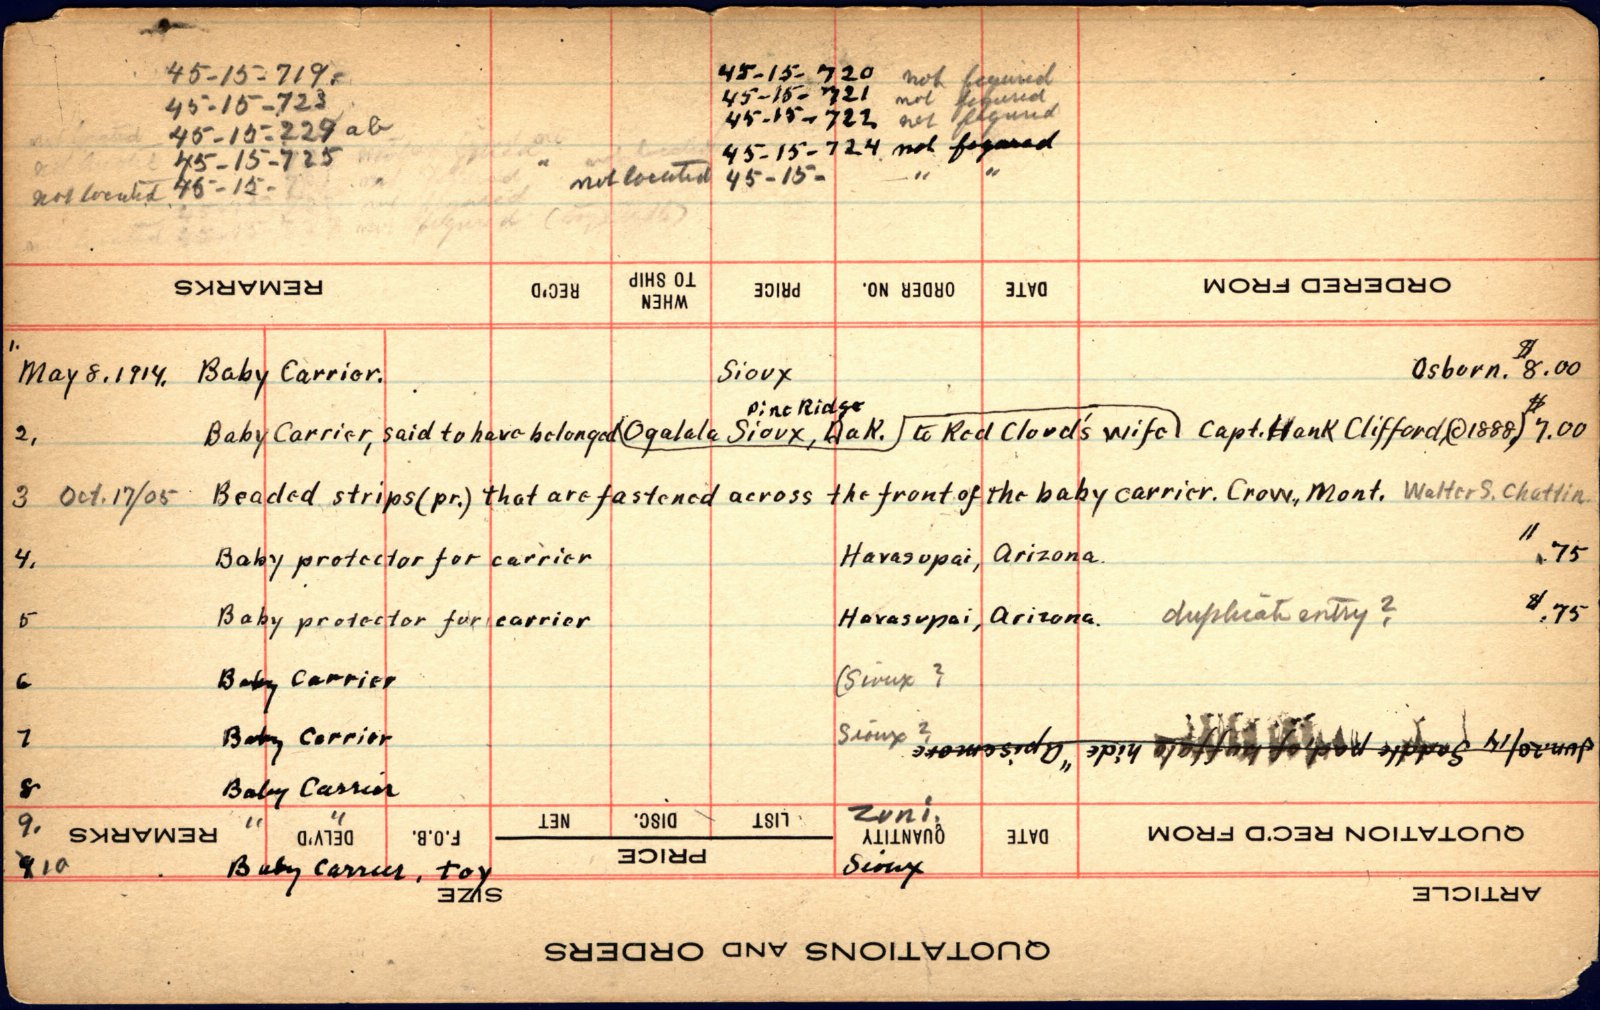 45-15-719. 45-15-720 not figured
45-15-723 45-15-721 not figured
45-15-229 ab 45-15-722 not figured
45-15-725 45-15-724 not figured
not located 45-15- " not located 45-15- " "
REMARKS REC'D WHEN TO SHIP PRICE ORDER NO. DATE ORDERED FROM
1. May 8. 1914. Baby Carrier. Sioux Osborn. $8.00
2. Baby Carrier, said to have belonged (Ogalala Sioux, Pine Ridge Dak.) to Red Cloud's wife Capt. Hank Clifford, @1888, $7.00
3 Oct. 17/05 Beaded strips (pr.) that are fastened across the front of the baby carrier. Crow, Mont. Walter S. Chattin.
4. Baby protector for carrier Havasupai, Arizona. " .75
5 Baby protector for carrier Havasupai, Arizona. duplicate entry? $.75
6 Baby Carrier (Sioux ?
7 Baby Carrier Sioux ?
Jun. 20/14 Saddle pad of buffalo hide "Apisemore
8 Baby Carrier
9. " " Zuni.
REMARKS DELV'D F.O.B. NET DISC. LIST QUANTITY DATE QUOTATION REC'D FROM
PRICE
10 Baby Carrier, toy Sioux
SIZE ARTICLE
QUOTATIONS AND ORDERS